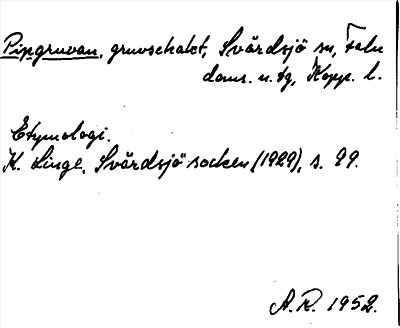 Pipgruvan, gruvschakt, Svärdsjö sn, Falu
doms. o. tg, Kopp. l.
Etymologi.
K. Linge, Svärdsjö socken (1929), s. 99.
A. R. 1952.